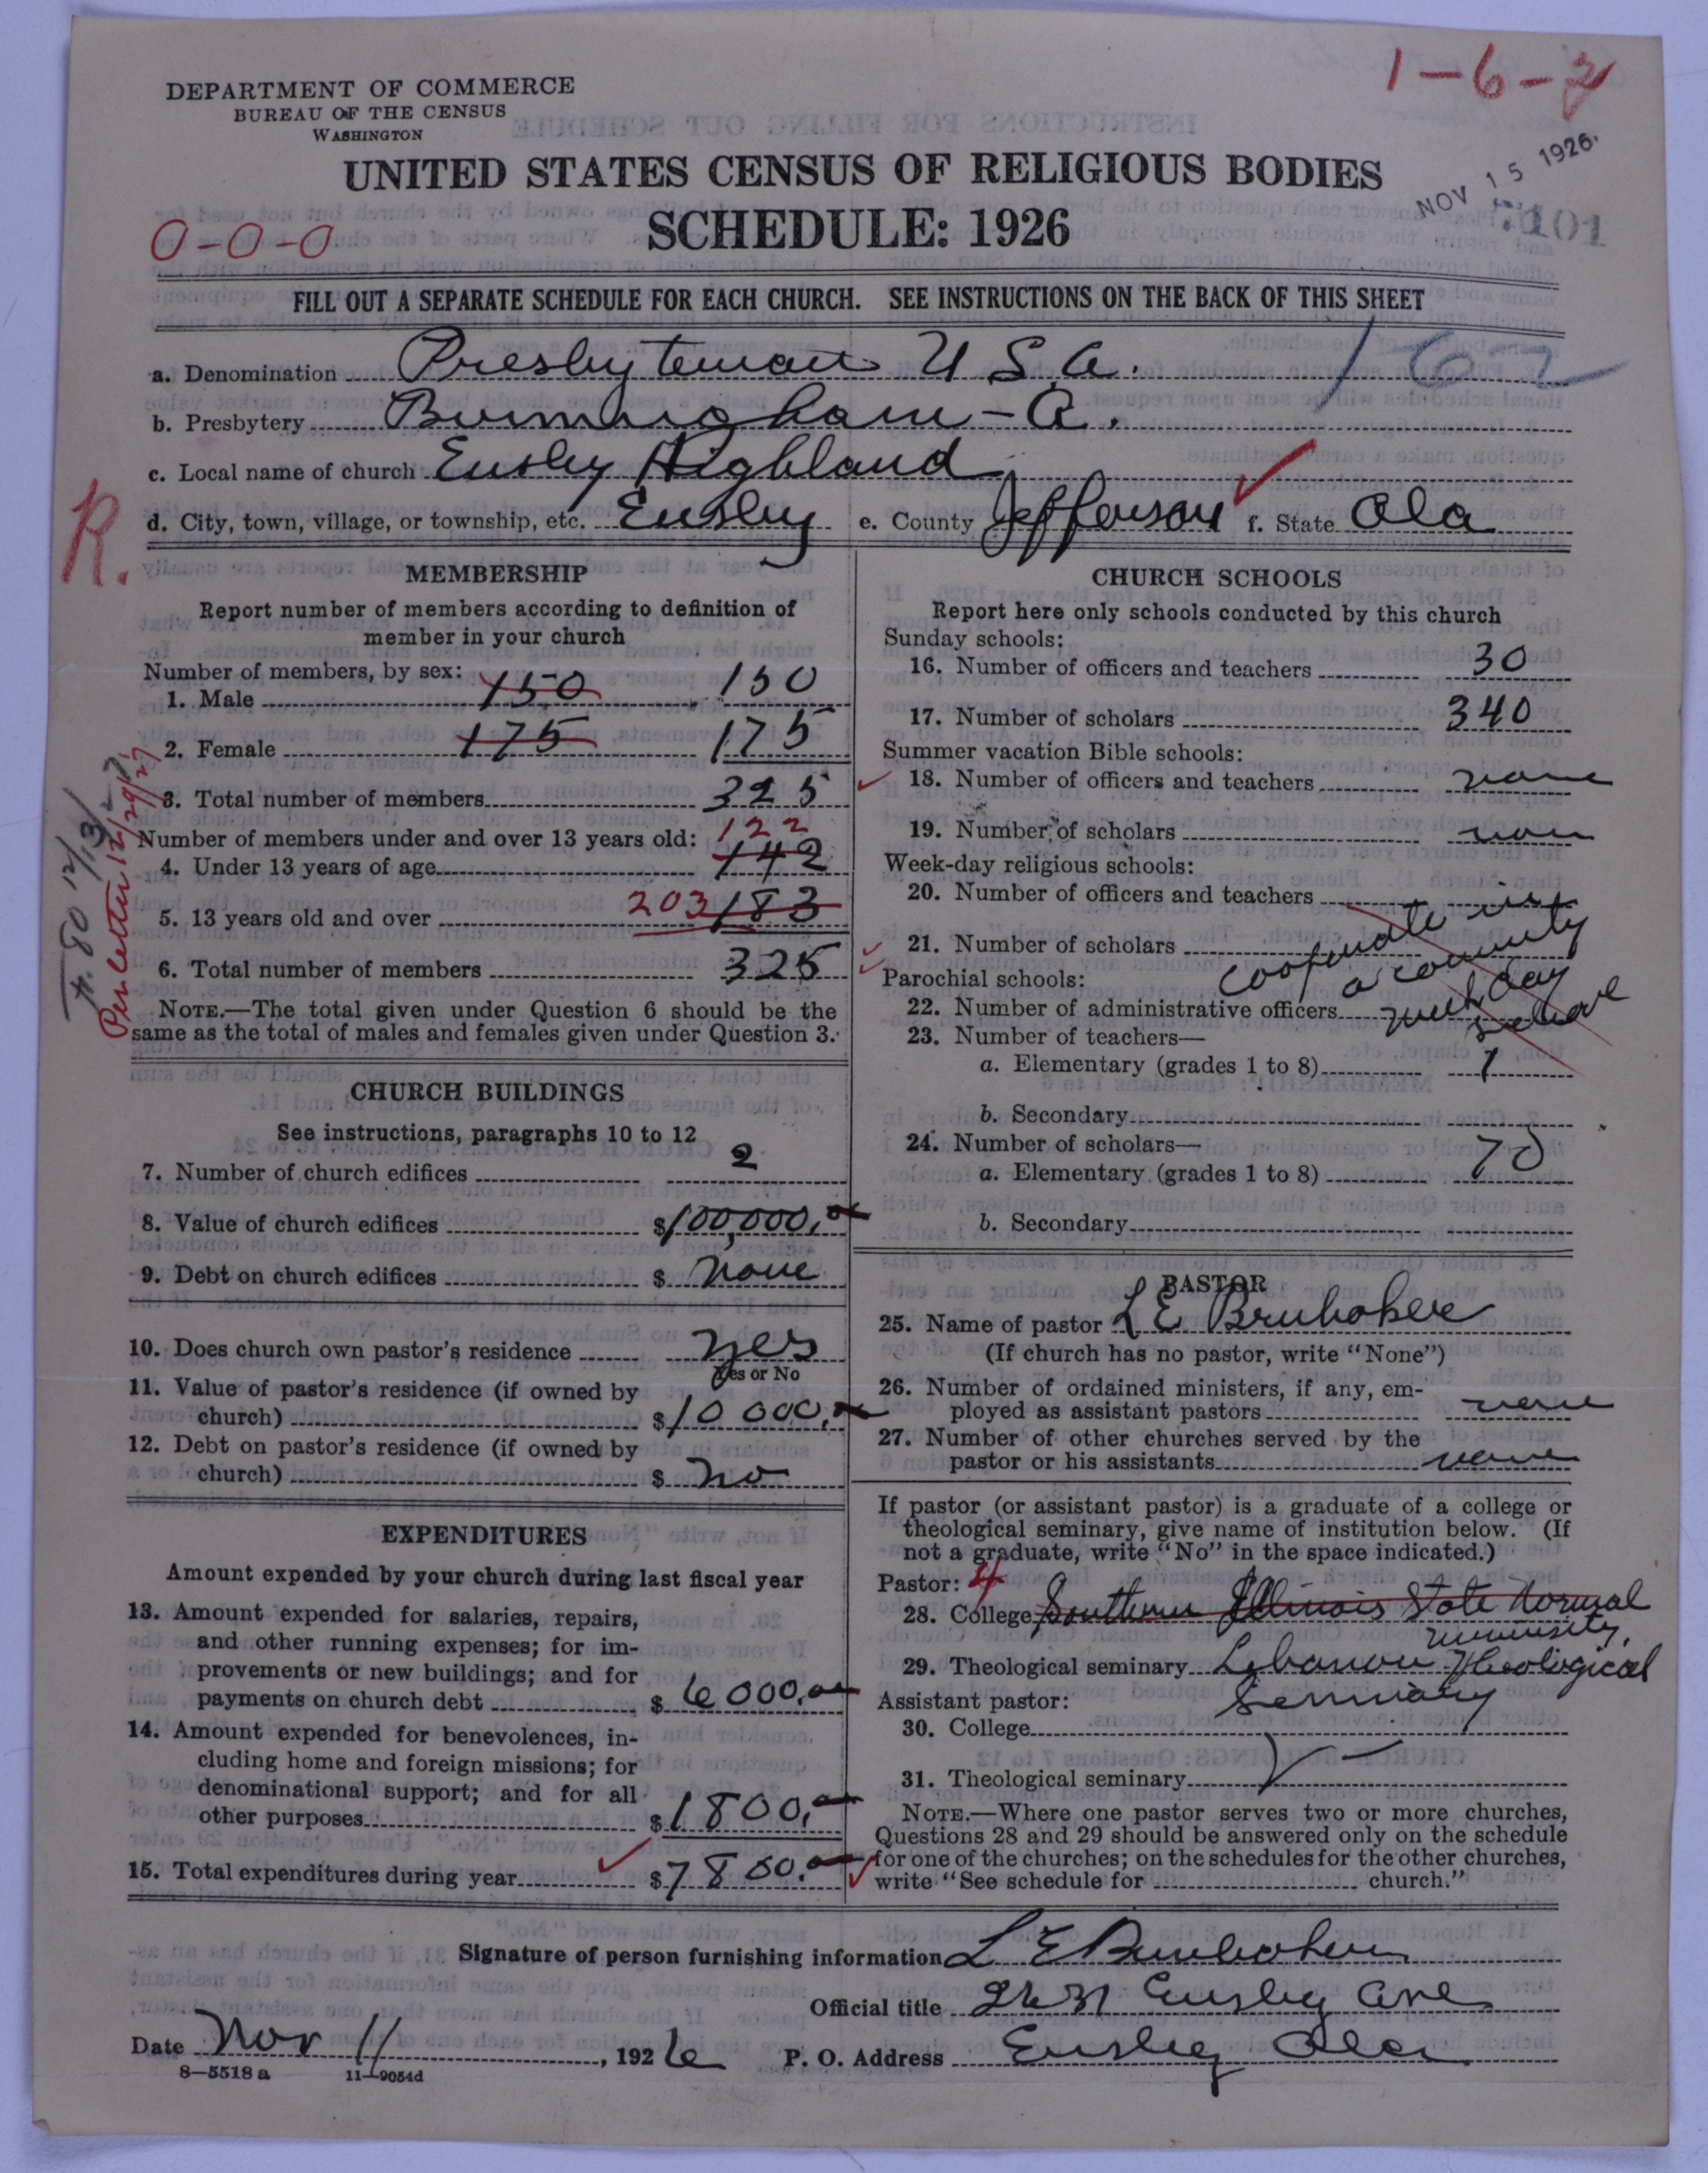 1-6-2
DEPARTMENT OF COMMERCE
BUREAU OF THE CENSUS
WASHINGTON
UNITED STATES CENSUS OF RELIGIOUS BODIES
NOV 15 1926
SCHEDULE: 1926
101
0-0-0
FILL OUT A SEPARATE SCHEDULE FOR EACH CHURCH. SEE INSTRUCTIONS ON THE BACK OF THIS SHEET
162
a. Denomination Presbyterian U S A.
b. Presbytery Birmingham - A.
c. Local name of church Ensley Highland
d. City, town, village, or township, etc. Ensley e. County Jefferson f. State Ala
R.
MEMBERSHIP
Report number of members according to definition of
member in your church
Number of members, by sex:
1. Male 150 150
2. Female 175 175
3. Total number of members 325
Number of members under and over 13 years old: 122
4. Under 13 years of age 142
5. 13 years old and over 203 183
6. Total number of members 325
NOTE.—The total given under Question 6 should be the
same as the total of males and females given under Question 3.
Per letter 12/29/27
CHURCH BUILDINGS
See instructions, paragraphs 10 to 12
7. Number of church edifices 2
8. Value of church edifices $100,000.00
9. Debt on church edifices $ none
10. Does church own pastor's residence yes
Yes or No
11. Value of pastor's residence (if owned by
church) $10 000.00
12. Debt on pastor's residence (if owned by
church) $ no
EXPENDITURES
Amount expended by your church during last fiscal year
13. Amount expended for salaries, repairs,
and other running expenses; for im-
provements or new buildings; and for
payments on church debt $ 6000.00
14. Amount expended for benevolences, in-
cluding home and foreign missions; for
denominational support; and for all
other purposes $1800.00
15. Total expenditures during year $7800.00
CHURCH SCHOOLS
Report here only schools conducted by this church
Sunday schools:
16. Number of officers and teachers 30
17. Number of scholars 340
Summer vacation Bible schools:
18. Number of officers and teachers none
19. Number of scholars none
Week-day religious schools:
20. Number of officers and teachers
21. Number of scholars cooperate in
a community
week day
school
Parochial schools:
22. Number of administrative officers
23. Number of teachers—
a. Elementary (grades 1 to 8) 1
b. Secondary
24. Number of scholars—
a. Elementary (grades 1 to 8) 70
b. Secondary
PASTOR
25. Name of pastor L E Brubaker
(If church has no pastor, write "None")
26. Number of ordained ministers, if any, em-
ployed as assistant pastors none
27. Number of other churches served by the
pastor or his assistants none
If pastor (or assistant pastor) is a graduate of a college or
theological seminary, give name of institution below. (If
not a graduate, write "No" in the space indicated.)
Pastor: 4
28. College Southern Illinois State Normal
University,
29. Theological seminary Lebanon Theological
Seminary
Assistant pastor:
30. College
31. Theological seminary
NOTE.—Where one pastor serves two or more churches,
Questions 28 and 29 should be answered only on the schedule
for one of the churches; on the schedules for the other churches,
write "See schedule for church."
Signature of person furnishing information L E Brubaker
Official title 2631 Ensley Ave
Date Nov 11, 1926 P. O. Address Ensley Ala
8—5518 a 11—9054d